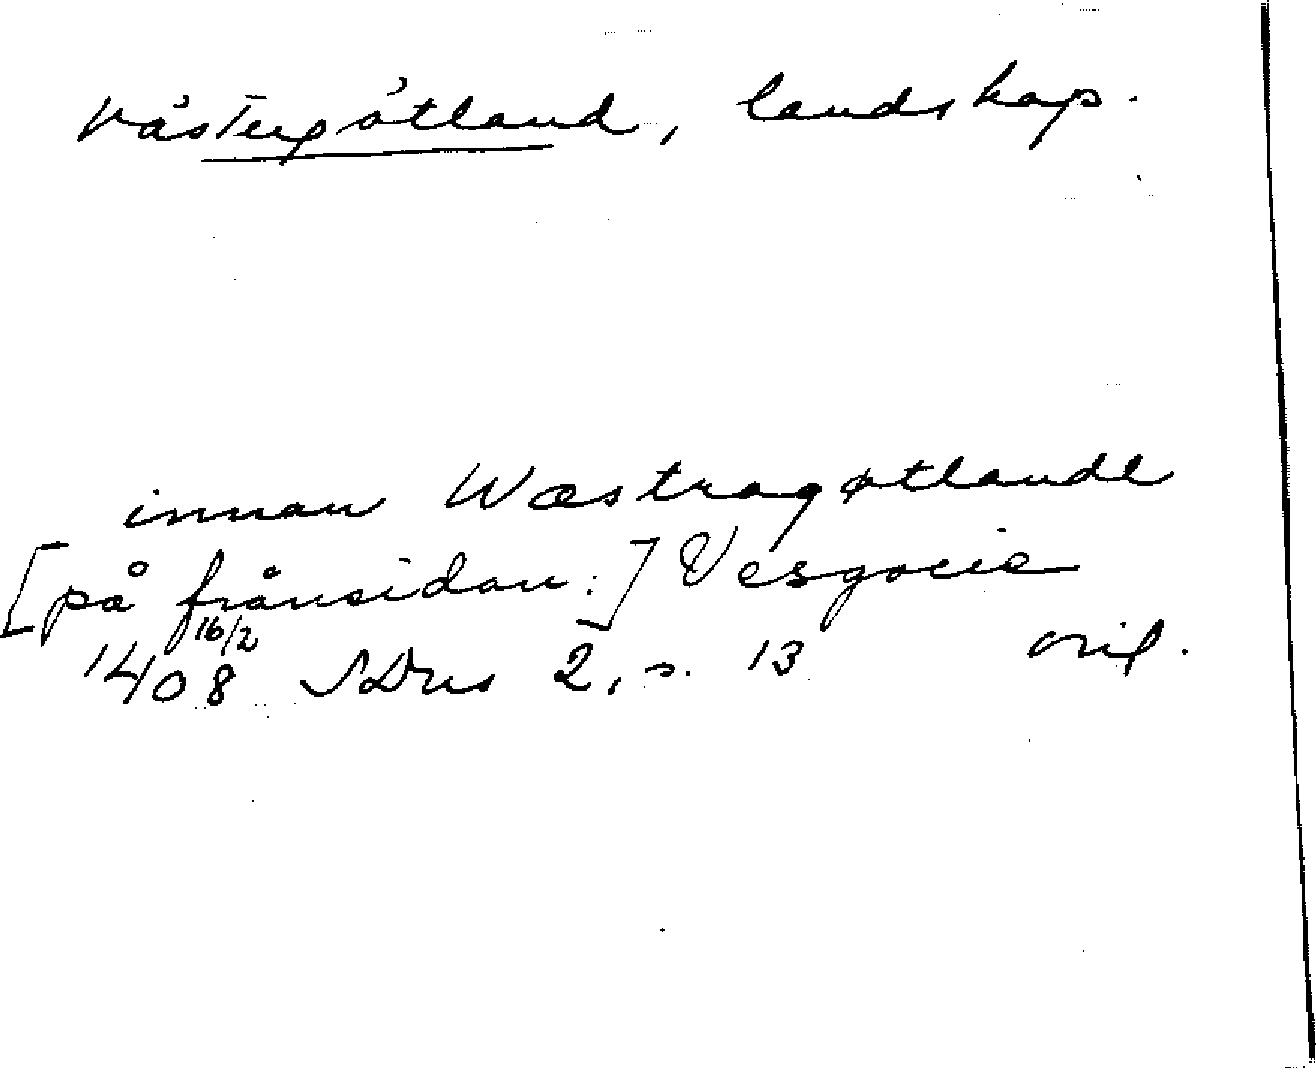 Västergötland, landskap.
innan Wæstragøtlande
[på frånsidan:] Vesgocie
16/2
1408 SDns 2, s. 13 orig.